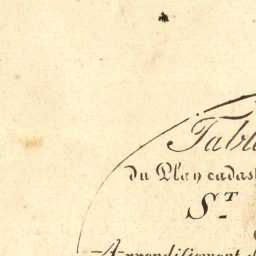 Table
du Plan cadast
ST
Arrondissement d